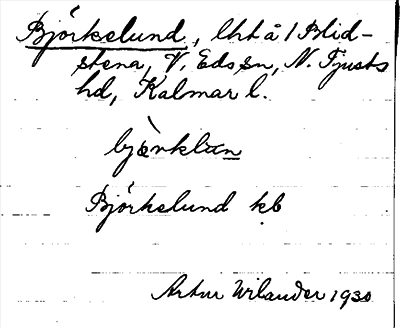 Björkelund, lht å 1 Blid-
stena, V. Eds sn, N. Tjusts
hd, Kalmar l.
bjärklun
Björkelund kb
Artur Wilander 1930